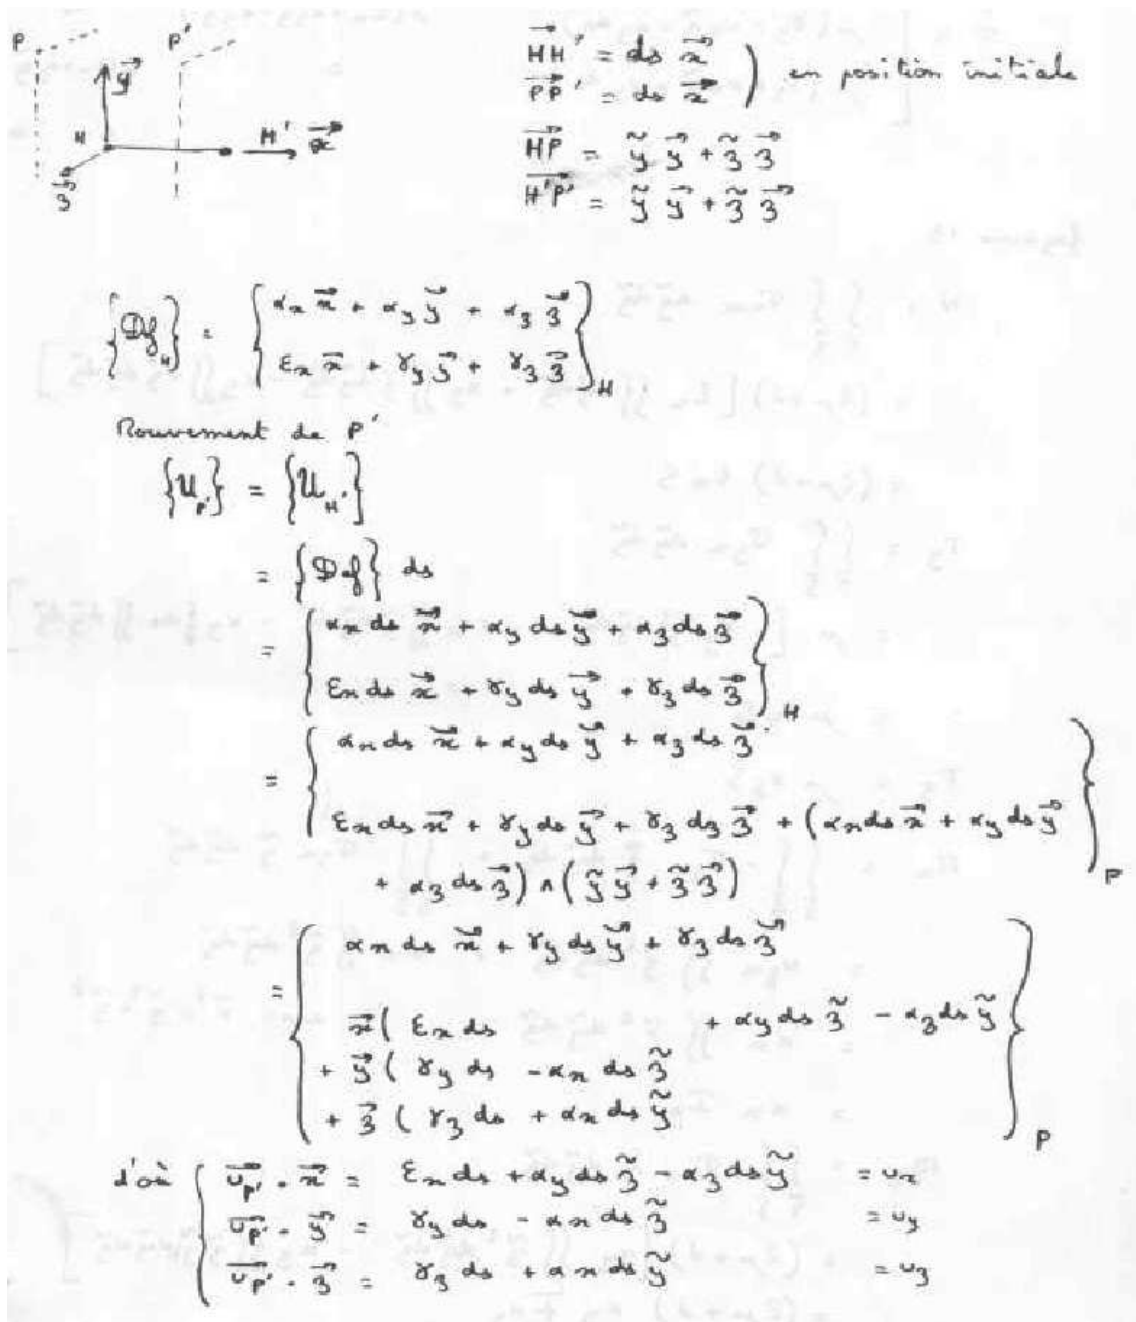 P P'
$\vec{y}$
H H' $\vec{x}$
$\vec{z}$
$\overrightarrow{HH'} = ds\ \vec{x}$
$\overrightarrow{PP'} = ds\ \vec{x}$ ) en position initiale
$\overrightarrow{HP} = \tilde{y}\ \vec{y} + \tilde{z}\ \vec{z}$
$\overrightarrow{H'P'} = \tilde{y}\ \vec{y} + \tilde{z}\ \vec{z}$
$\{Def_H\} = \{ \alpha_x \vec{x} + \alpha_y \vec{y} + \alpha_z \vec{z}$
$\varepsilon_x \vec{x} + \gamma_y \vec{y} + \gamma_z \vec{z} \}_H$
Mouvement de P'
$\{U_{P'}\} = \{U_{H'}\}$
$= \{Def\}\ ds$
$= \{ \alpha_x ds\ \vec{x} + \alpha_y ds\ \vec{y} + \alpha_z ds\ \vec{z}$
$\varepsilon_x ds\ \vec{x} + \gamma_y ds\ \vec{y} + \gamma_z ds\ \vec{z} \}_H$
$= \{ \alpha_x ds\ \vec{x} + \alpha_y ds\ \vec{y} + \alpha_z ds\ \vec{z}$
$\varepsilon_x ds\ \vec{x} + \gamma_y ds\ \vec{y} + \gamma_z dz\ \vec{z} + (\alpha_x ds\ \vec{x} + \alpha_y ds\ \vec{y}$
$+ \alpha_z ds\ \vec{z}) \wedge (\tilde{y}\ \vec{y} + \tilde{z}\ \vec{z}) \}_P$
$= \{ \alpha_x ds\ \vec{x} + \gamma_y ds\ \vec{y} + \gamma_z ds\ \vec{z}$
$\vec{x} ( \varepsilon_x ds + \alpha_y ds\ \tilde{z} - \alpha_z ds\ \tilde{y}$
$+ \vec{y} ( \gamma_y ds - \alpha_x ds\ \tilde{z}$
$+ \vec{z} ( \gamma_z ds + \alpha_x ds\ \tilde{y} \}_P$
d'où $\{ \overrightarrow{U_{P'}} \cdot \vec{x} = \varepsilon_x ds + \alpha_y ds\ \tilde{z} - \alpha_z ds\ \tilde{y} = u_x$
$\overrightarrow{U_{P'}} \cdot \vec{y} = \gamma_y ds - \alpha_x ds\ \tilde{z} = u_y$
$\overrightarrow{U_{P'}} \cdot \vec{z} = \gamma_z ds + \alpha_x ds\ \tilde{y} = u_z$